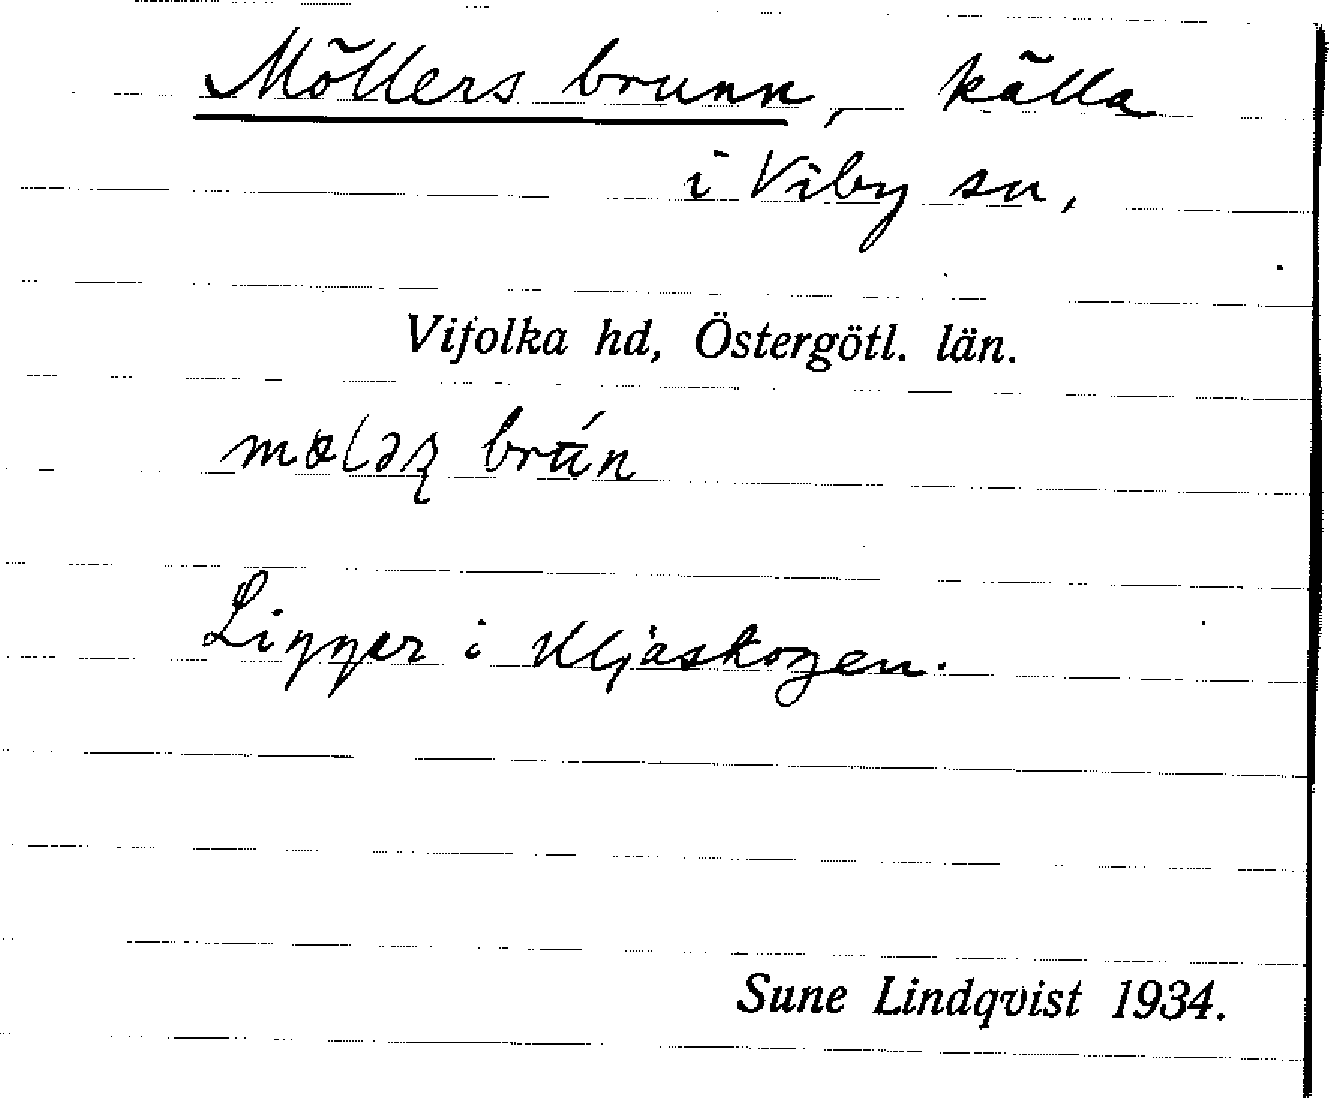 Möllers brunn, källa
i Viby sn,
Vifolka hd, Östergötl. län.
brún
Ligger i Uljaskogen.
Sune Lindqvist 1934.